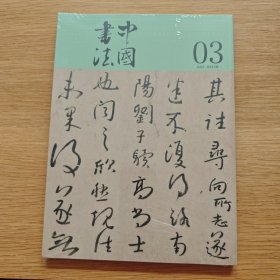 中國
書法
03
其往尋向所志遂
迷不復得路南
陽劉子驥高尚士
也聞之欣然規往
未果後遂無